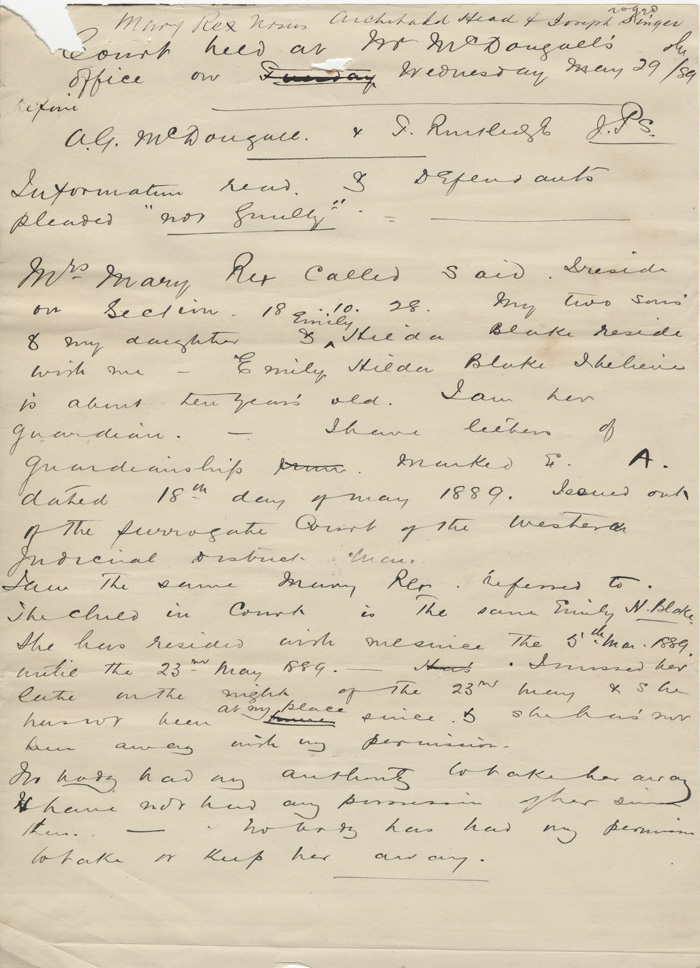 Mary Rex versus Archibald Head & Joseph Singer
Court held at Mr McDougall's
office on Tuesday Wednesday May 29/89
A.G. McDougall. & J. Rutledge J.Ps.
Information read. & Defendants
pleaded "not Guilty".
Mrs Mary Rex Called Said. I reside
on Section. 18. 10. 28. My two sons
& my daughter & Emily Hilda Blake reside
with me - Emily Hilda Blake I believe
is about ten years old. I am her
guardian. - I have letters of
guardianship Marked E. A.
dated 18th day of may 1889. Issued out
of the Surrogate Court of the Western
Judicial District Man.
I am the same Mary Rex referred to.
The child in Court is the same Emily H. Blake
She has resided with me since the 5th Mar. 1889.
until the 23rd May 1889. - Has. I missed her
late on the night of the 23rd may & she
has not been at my place home since. & she has not
been away with my permission.
No body had any authority to take her away
I have not had any possession of her since
then. - No body has had my permission
to take or keep her away.